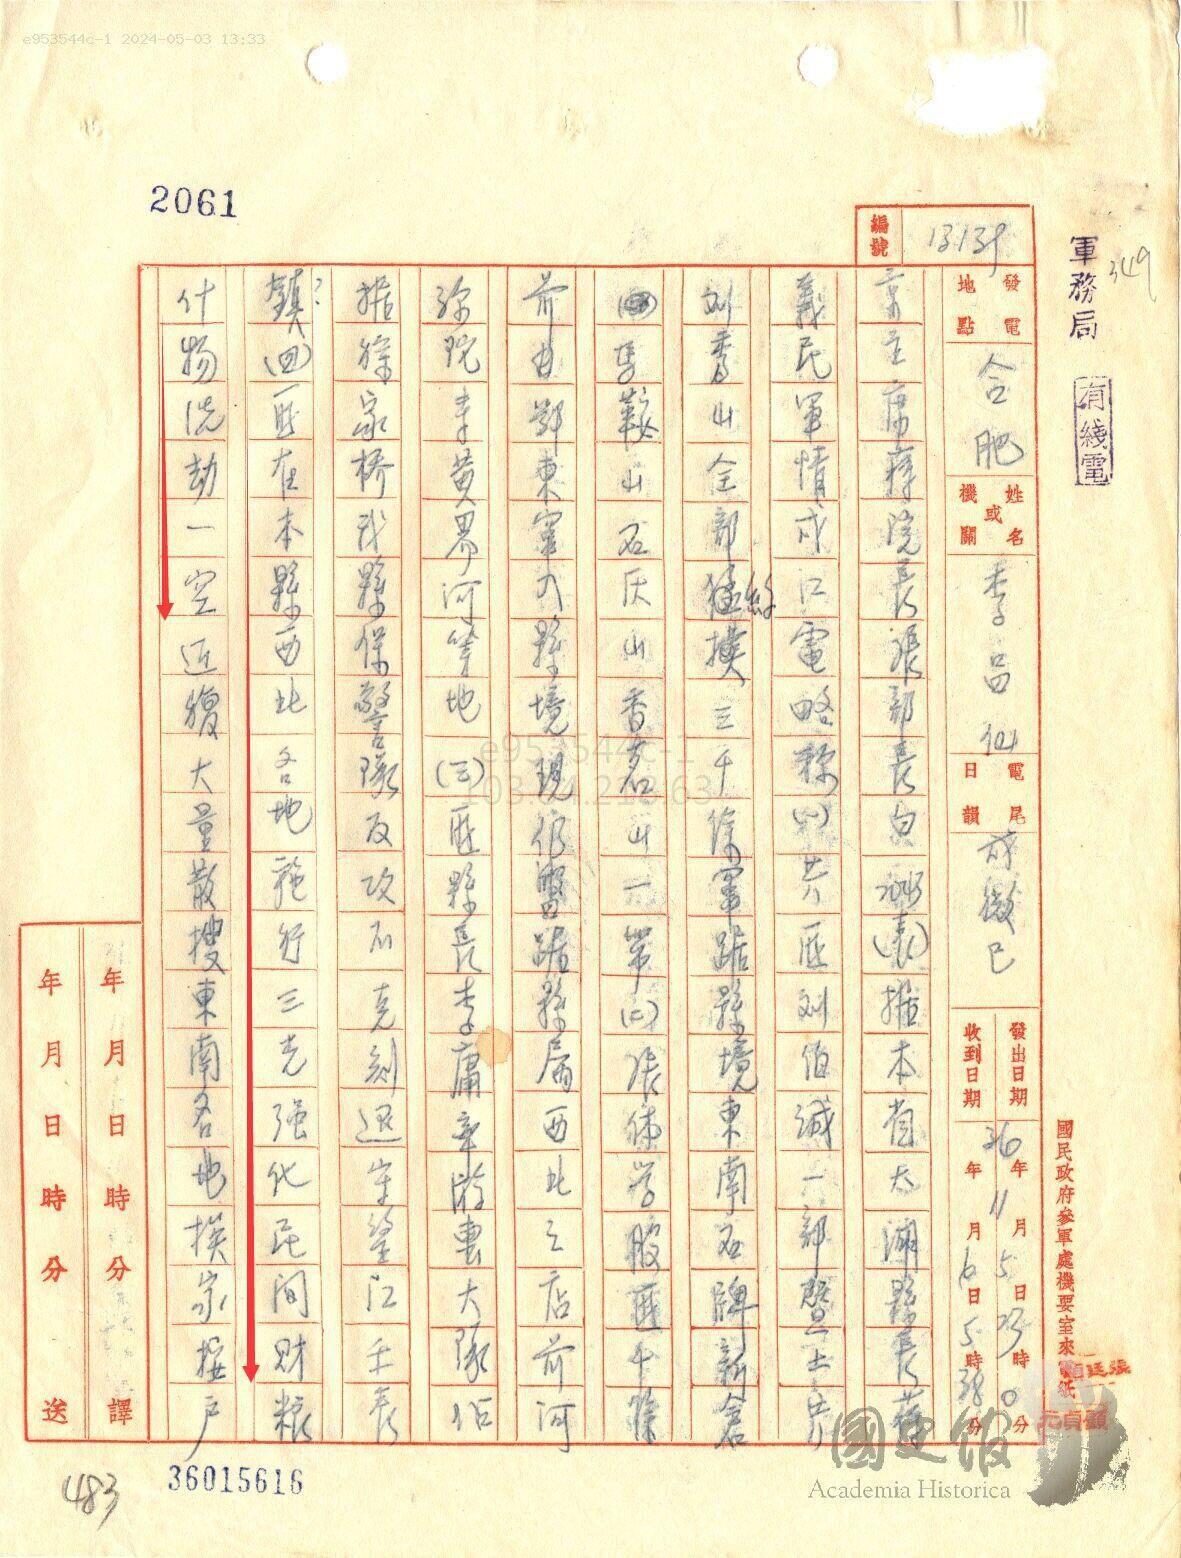 e953544c-1 2024-05-03 13:33
2061
349
軍務局
有綫電
編號 13139
發電地點 合肥
姓名或機關 李品仙
電尾日韻 戌微巳
發出日期 36年11月5日23時0分
收到日期 年月6日5時38分
國民政府參軍處機要室來電紙
京主席蔣院長張部長白 (表)據本省太湖縣長
義民軍情戌江電略稱(一)共匪刘伯誠一部暨土共
刘秀山全部 三千餘軍踞縣境東南石牌新倉
馬鞍山石灰山香茗山一帶(二)張体学股匪千餘
前由鄂東窜入縣境現仍盤踞縣屬西北之店前河
弥陀寺黄界河等地(三)匪縣長李庸章游擊大隊佔
据徐家桥我縣保警隊反攻不克刻退守 江壬長
鎮(四)匪在本縣西北各地施行三光强化民间财粮
什物洗劫一空近複大量散搜東南各地挨家按户
年月日時分譯
年月日時分送
e953544c-1
483
36015616
國史館
Academia Historica